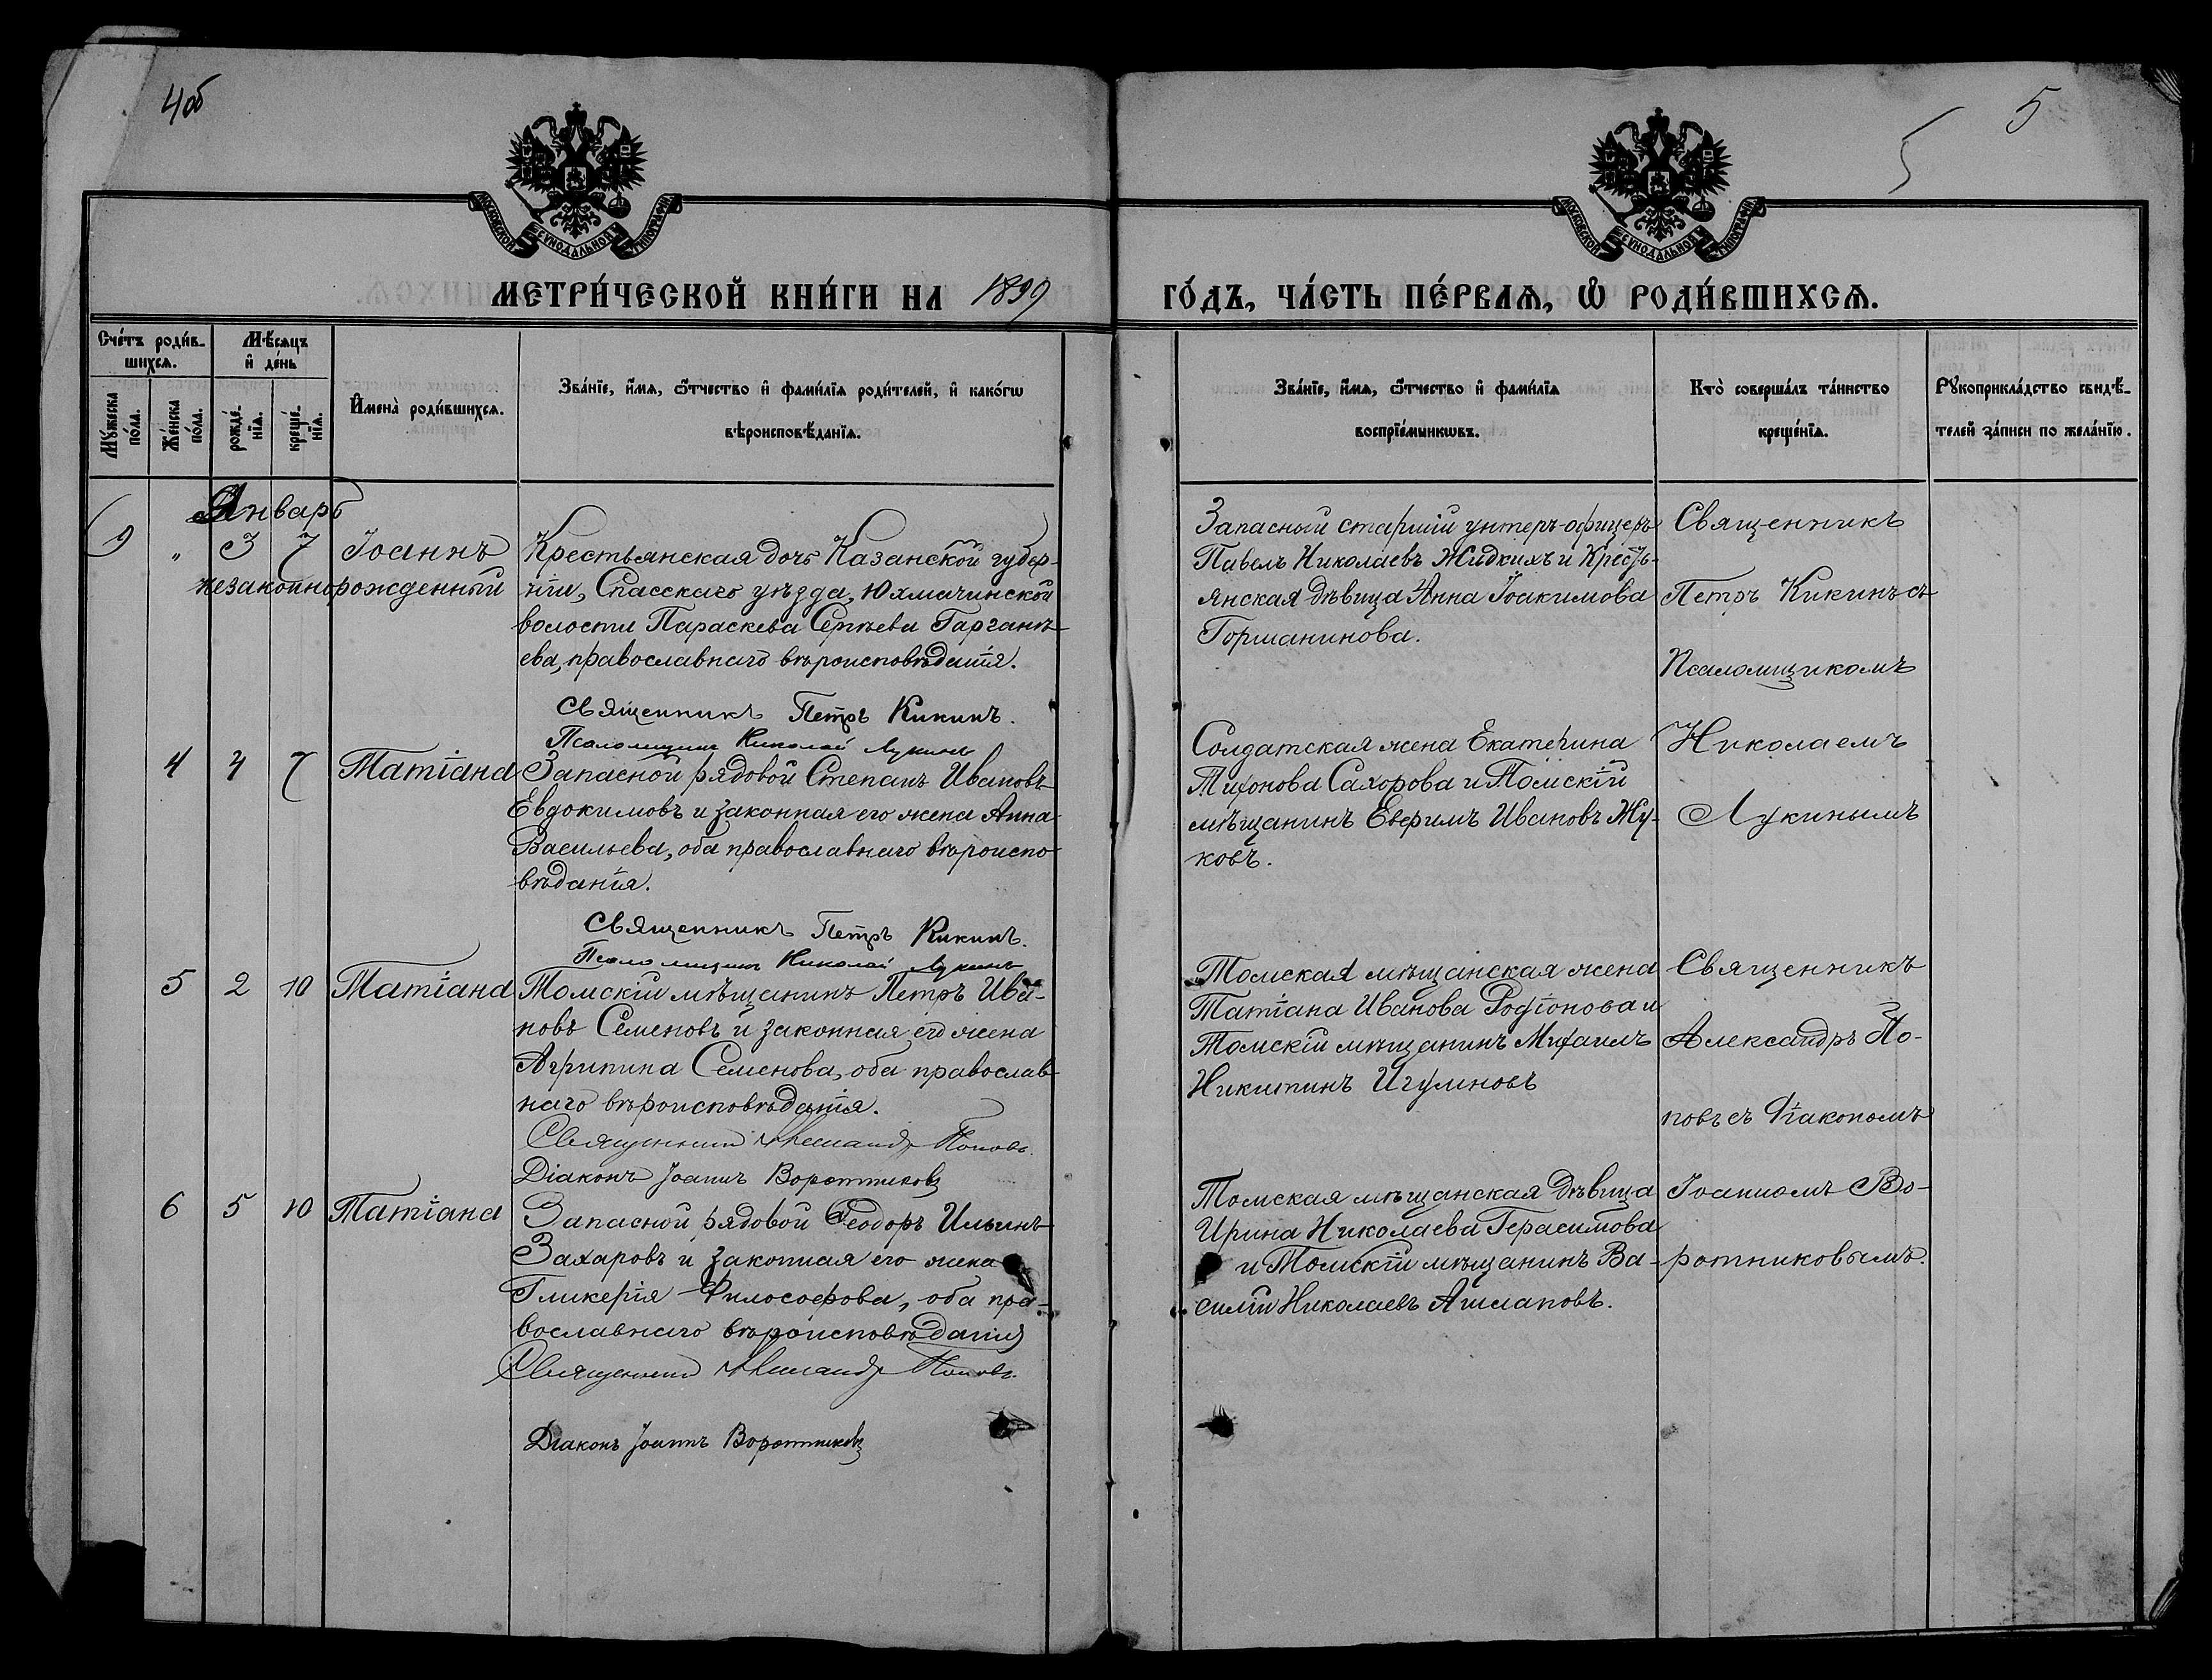 4об
5
5
МОСКОВСКОЙ СѴНОДАЛЬНОЙ ТИПОГРАФІИ
МОСКОВСКОЙ СѴНОДАЛЬНОЙ ТИПОГРАФІИ
МЕТРИ́ЧЕСКОЙ КНИ́ГИ НА 1899
ГО́ДЪ, ЧА́СТЬ ПЕ́РВАѦ, Ѡ РОДИ́ВШИХСѦ.
Сче́тъ роди́в-
шихсѧ.
Мѣ́сяцъ
и҆ де́нь
Мꙋ́жеска
по́ла.
Же́нска
по́ла.
рожде́-
нїѧ.
креще́-
нїѧ.
И҆мена̀ роди́вшихсѧ.
Зва́нїе, и҆́мѧ, ѻ҆́тчество и҆ фами́лїѧ роди́телей, и҆ како́гѡ
вѣроисповѣ́данїѧ.
Зва́нїе, и҆́мѧ, ѻ҆́тчество и҆ фами́лїѧ
воспрїе́мникѡвъ.
Кто̀ соверша́лъ та́инство
креще́нїѧ.
Рꙋкоприкла́дство свидѣ́-
телей за́писи по жела́нїю.
Январь
9 " 3 7 Іоаннъ
незаконнорожденный
Крестьянская дочь Казанской губер-
ніи, Спасскаго уѣзда, Юхмачинской
волости Параскева Сергѣева Гарганѣ-
ева, православнаго вѣроисповѣданія.
Священникъ Петръ Кикинъ.
Псаломщикъ Николай Лукинъ
Запасный старшій унтеръ-офицеръ
Павелъ Николаевъ Жидкихъ и Кресть-
янская дѣвица Анна Іоакимова
Горшанинова.
Священникъ
Петръ Кикинъ съ
Псаломщикомъ
Николаемъ
Лукинымъ
4 4 7 Татіана
Запасной рядовой Степанъ Ивановъ
Евдокимовъ и законная его жена Анна
Васильева, оба православнаго вѣроиспо-
вѣданія.
Священникъ Петръ Кикинъ.
Псаломщикъ Николай Лукинъ
Солдатская жена Екатерина
Тихонова Сахорова и Томскій
мѣщанинъ Евфимъ Ивановъ Жу-
ковъ.
5 2 10 Татіана
Томскій мѣщанинъ Петръ Ива-
новъ Семеновъ и законная его жена
Агрипина Семенова, оба православ-
наго вѣроисповѣданія.
Священникъ Александръ Поповъ.
Діаконъ Іоаннъ Воротниковъ
Томская мѣщанская жена
Татіана Иванова Родіонова и
Томскій мѣщанинъ Михаилъ
Никитинъ Игумновъ
Священникъ
Александръ По-
повъ съ Діакономъ
Іоанномъ Во-
ротниковымъ.
6 5 10 Татіана
Запасной рядовой Ѳеодоръ Ильинъ
Захаровъ и законная его жена
Гликерія Философова, оба пра-
вославнаго вѣроисповѣданія
Священникъ Александръ Поповъ.
Діаконъ Іоаннъ Воротниковъ
Томская мѣщанская дѣвица
Ирина Николаева Герасимова
и Томскій мѣщанинъ Ва-
силій Николаевъ Ашлаповъ.